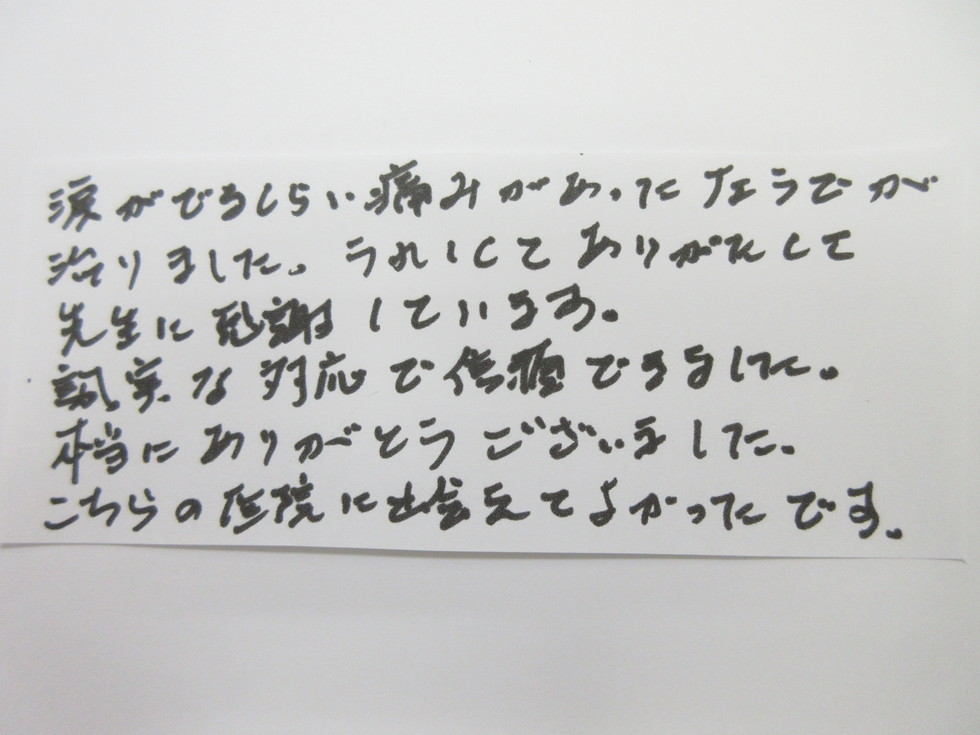 涙がでるくらい痛みがあったようですが
治りました。うれしくてありがたくて
先生に感謝しています。
誠実な対応で信頼できました。
本当にありがとうございました。
こちらの医院に出会えてよかったです。